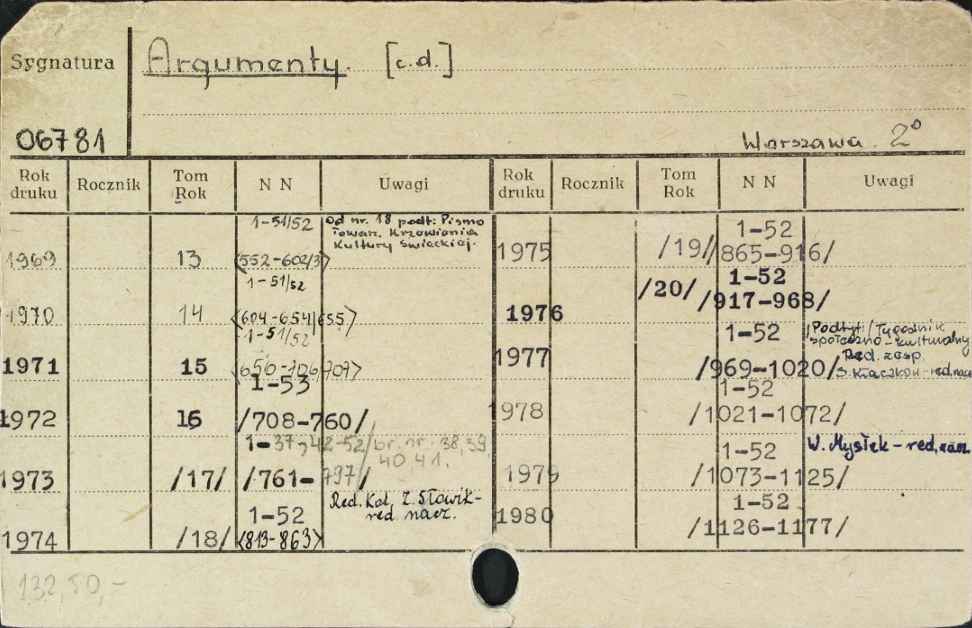 Sygnatura
Argumenty. [c.d.]
06781
Warszawa. 2°
Rok druku Rocznik Tom Rok N N Uwagi
1-51/52 Od nr. 18 podt: Pismo
Towarz. Krzewienia
Kultury Świeckiej.
1969 13 <552-602/3>
1-51/52
1970 14 <604-654/655>
1-51/52
1971 15 <656-706/707>
1-53
1972 16 /708-760/
1-37, 42-52/br. nr. 38,39
40 41.
1973 /17/ /761-797/
Red. Kol. Z. Słowik-
red. nacz.
1-52
1974 /18/ <813-863>
Rok druku Rocznik Tom Rok N N Uwagi
1-52
1975 /19/ /865-916/
1-52
1976 /20/ /917-968/
1-52 /Podtyt:/Tygodnik
społeczno-kulturalny
1977 Red. zesp.
/969-1020/ red.nacz
1-52
1978 /1021-1072/
1-52 W. Mysłek - red. nacz.
1979 /1073-1125/
1-52
1980 /1126-1177/
132,50,-